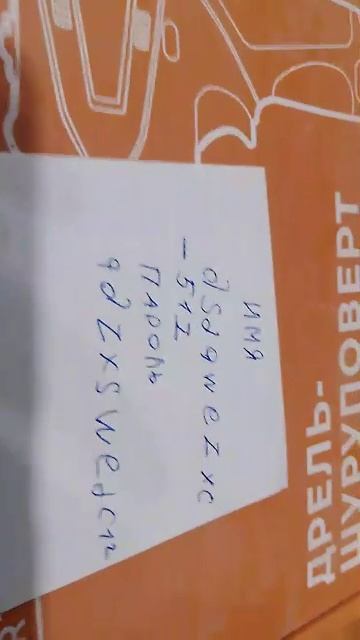 имя
dsdqwezxc
-512
Пароль
qdzxswedcr
ДРЕЛЬ-
ШУРУПОВЕРТ